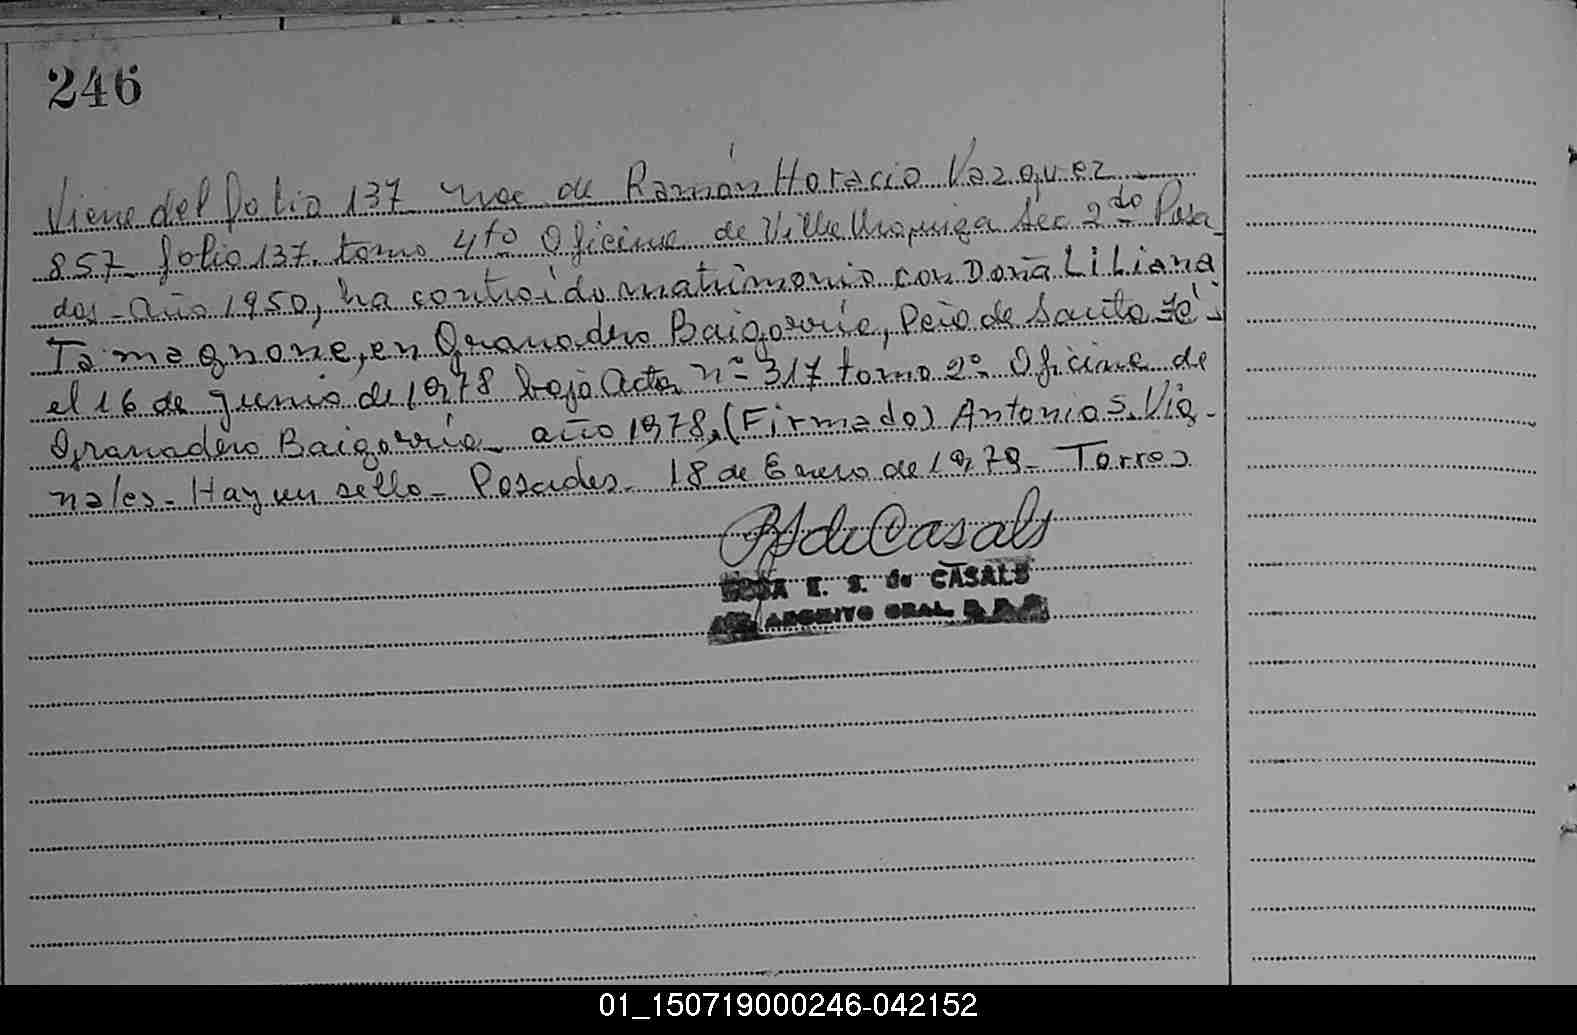 246
Viene del Folio 137 nac de Ramón Horacio Vazquez
857 folio 137. tomo 4to Oficina de Villa Urquiza Sec 2do Posa
das - año 1950, ha contraído matrimonio con Doña LiLiana
Tamagnone, en Granadero Baigorria, Pcia de Santa Fé
el 16 de junio de 1978 bajo Acta nº 317 tomo 2º Oficina de
Granadero Baigorria - año 1978, (Firmado) Antonio S. Vig-
nales - Hay un sello - Posadas - 18 de Enero de 1979 - Torres
de Casals
E. S. de CASALS
ARCHIVO GRAL.
01_150719000246-042152